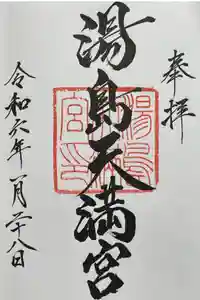 奉拝
湯島天満宮
令和六年一月二十八日